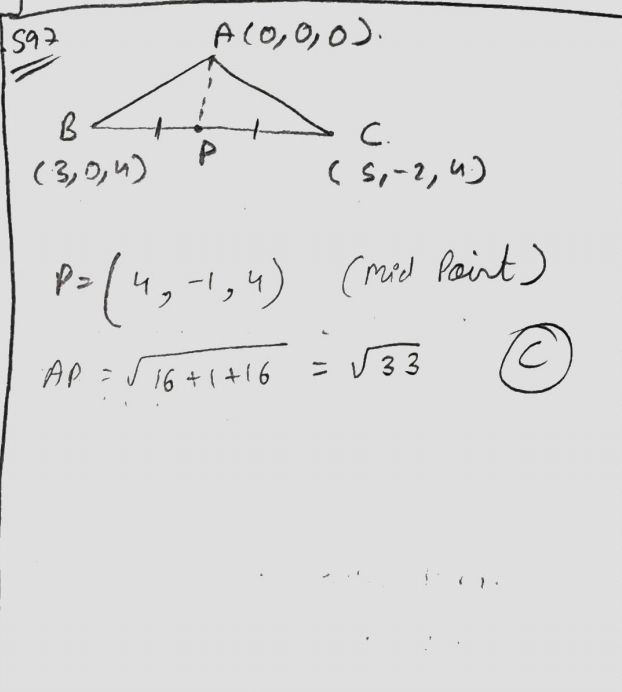 S97
A(0,0,0).
B
C.
P
(3,0,4)
(5,-2,4)
P=(4,-1,4) (Mid Point)
AP = √16+1+16 = √33
C